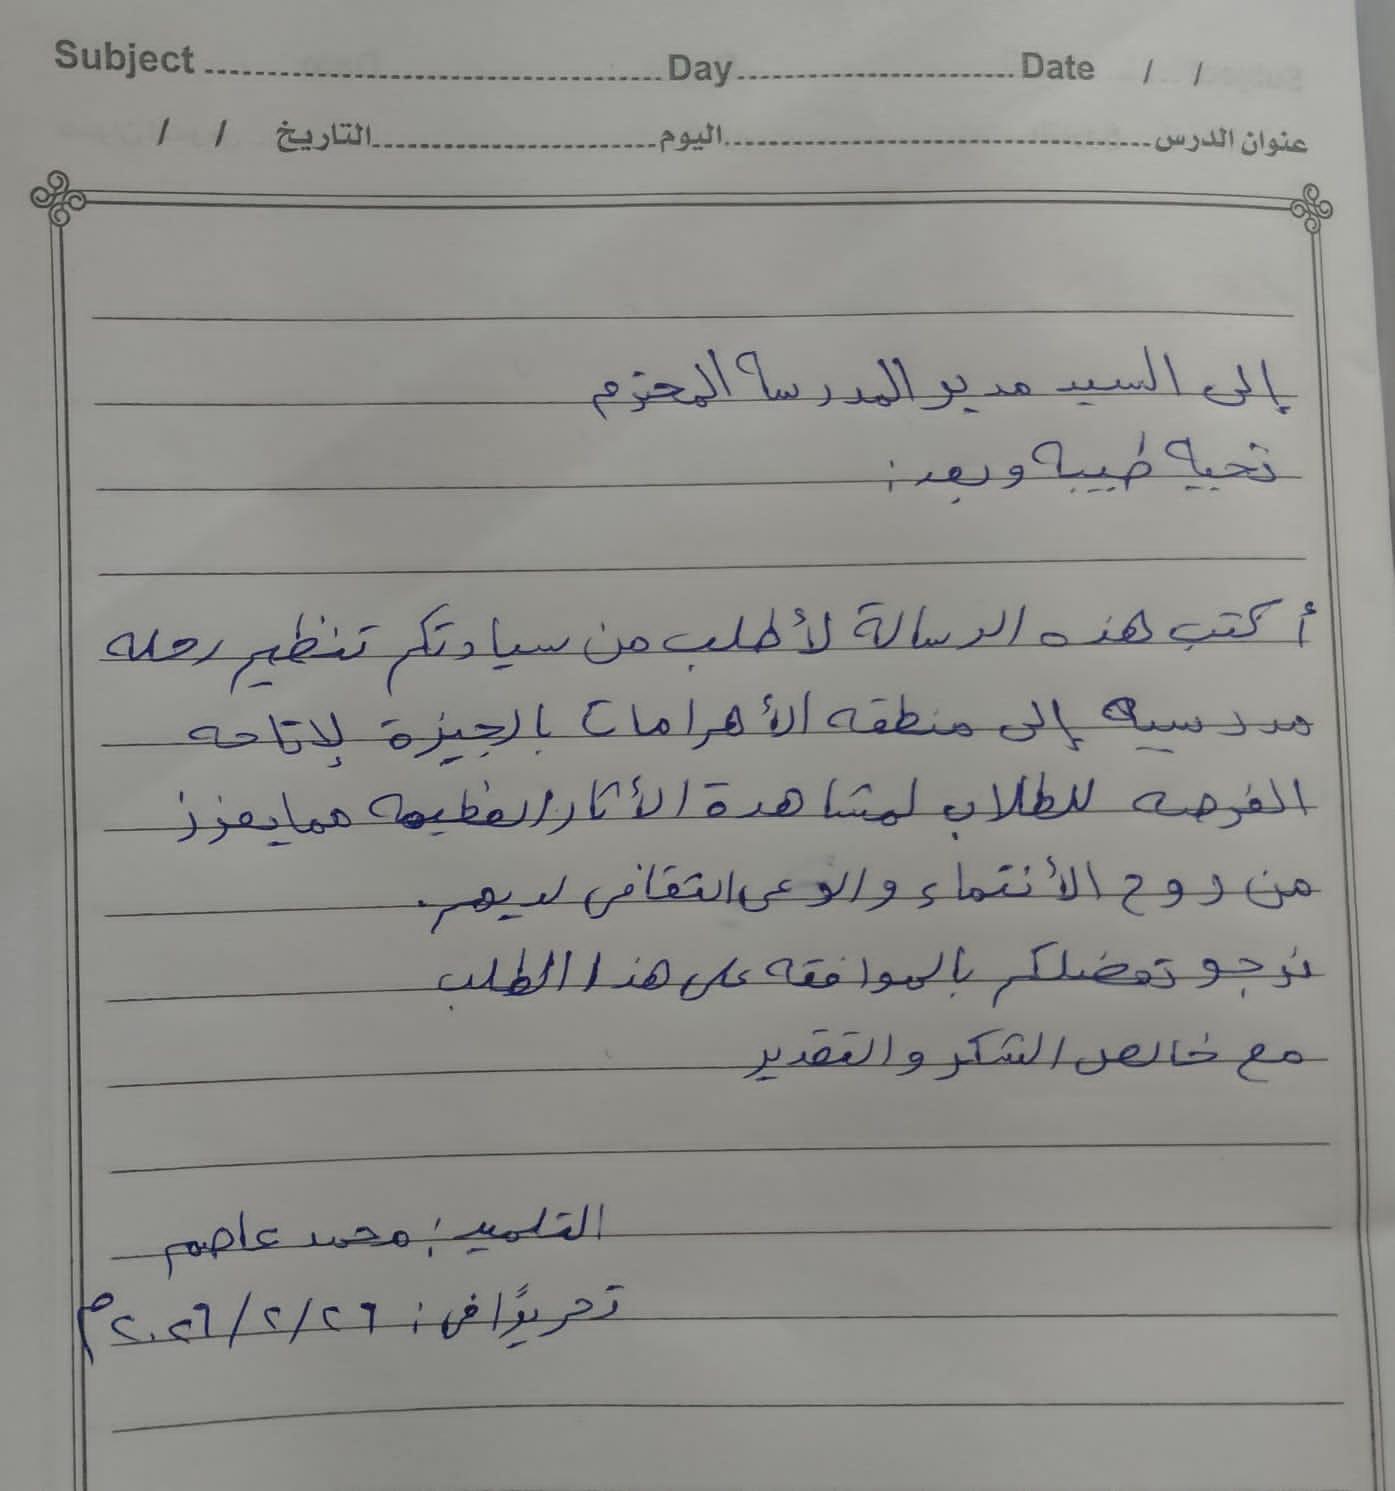 Subject ........ Day ........ Date / /
عنوان الدرس ........ اليوم ........ التاريخ / /
إلى السيد مدير المدرسة المحترم
تحيه طيبه وبعد :
أكتب هذه الرسالة لأطلب من سيادتكم تنظيم رحله
مدرسيه إلى منطقه الأهرامات بالجيزة لإتاحه
الفرصه للطلاب لمشاهدة الأثار العظيمه مما يعزز
من روح الأنتماء والوعى الثقافى لديهم.
نرجو تفضلكم بالموافقه على هذا الطلب
مع خالص الشكر والتقدير
التلميذ : محمد عاصم
تحريرًا فى : ٢٦/٢/٢٠٢٦م